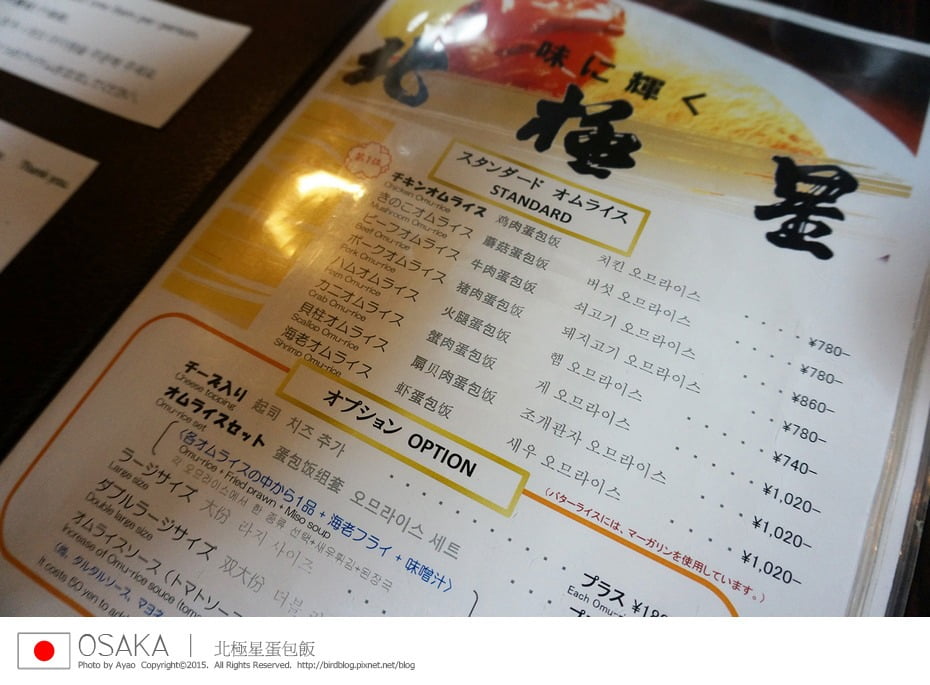 味に輝く
北極星
スタンダード オムライス
STANDARD
第1位
チキンオムライス 鸡肉蛋包饭 치킨 오므라이스 ¥780-
Chicken Omu-rice
きのこオムライス 蘑菇蛋包饭 버섯 오므라이스 ¥780-
Mushroom Omu-rice
ビーフオムライス 牛肉蛋包饭 쇠고기 오므라이스 ¥860-
Beef Omu-rice
ポークオムライス 猪肉蛋包饭 돼지고기 오므라이스 ¥780-
Pork Omu-rice
ハムオムライス 火腿蛋包饭 햄 오므라이스 ¥740-
Ham Omu-rice
カニオムライス 蟹肉蛋包饭 게 오므라이스 ¥1,020-
Crab Omu-rice
貝柱オムライス 扇贝肉蛋包饭 조개관자 오므라이스 ¥1,020-
Scallop Omu-rice
海老オムライス 虾蛋包饭 새우 오므라이스 ¥1,020-
Shrimp Omu-rice
(バターライスには、マーガリンを使用しています。)
オプション OPTION
チーズ入り 起司 치즈 추가
Cheese topping
オムライスセット 蛋包饭组套 오므라이스 세트
Omu-rice set
〈各オムライスの中から1品 + 海老フライ + 味噌汁〉
Omu-rice・Fried prawn・Miso soup
각 오므라이스에서 한 종류 선택+새우튀김+된장국
ラージサイズ 大份 라지 사이즈
Large size
プラス ¥18
Each Omu-
ダブルラージサイズ 双大份 더블
Double large size
オムライスソース (トマトソー
Increase of Omu-rice sauce (tom
タルタルソース、マヨネ
It costs 50 yen to add
Thank you.
OSAKA | 北極星蛋包飯
Photo by Ayao Copyright©2015. All Rights Reserved. http://birdblog.pixnet.net/blog